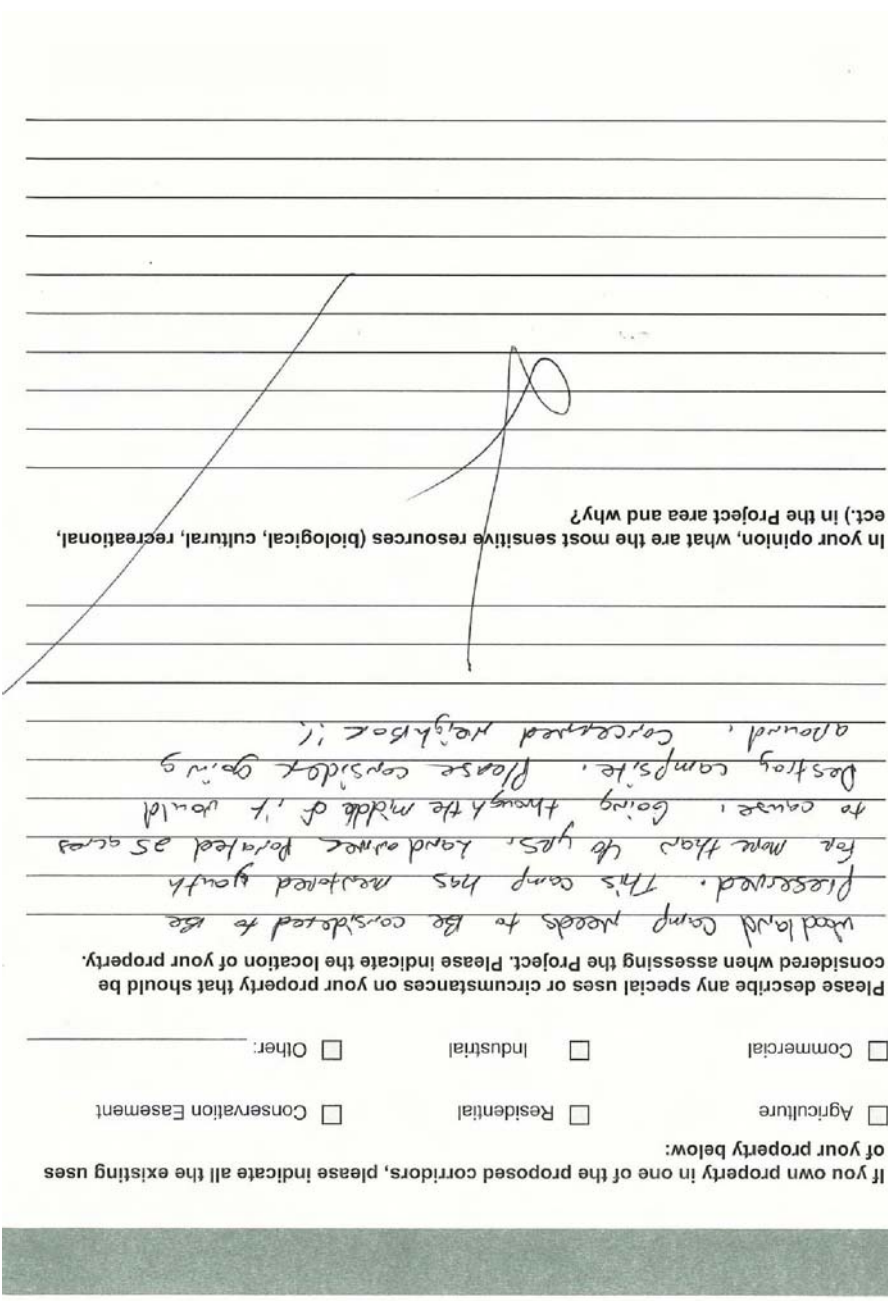 If you own property in one of the proposed corridors, please indicate all the existing uses
of your property below:
☐ Agriculture ☐ Residential ☐ Conservation Easement
☐ Commercial ☐ Industrial ☐ Other:
Please describe any special uses or circumstances on your property that should be
considered when assessing the Project. Please indicate the location of your property.
Woodland Camp Needs to Be considered to Be
preserved. This camp has mentored youth
for more than 40 yrs. Landowner Donated 25 acres
to cause. Going through the middle of it would
Destroy campsite. Please consider going
around. Concerned Neighbor!!
In your opinion, what are the most sensitive resources (biological, cultural, recreational,
ect.) in the Project area and why?